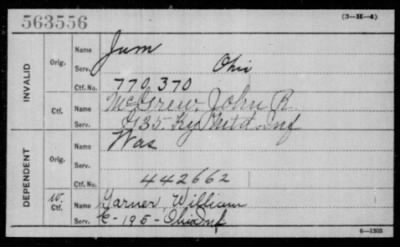 563556
(3—H—4)
INVALID
Orig.
Name
Jum
Serv.
Ohio
Ctf. No.
770,370
Ctf.
Name
McGrew, John R.
Serv.
F 35. Ky Mtd. Inf
DEPENDENT
Orig.
Name
Was
Serv.
Ctf. No.
442662
W.
Ctf.
Name
Garner, William
Serv.
C - 195 - Ohio Inf
6—1303